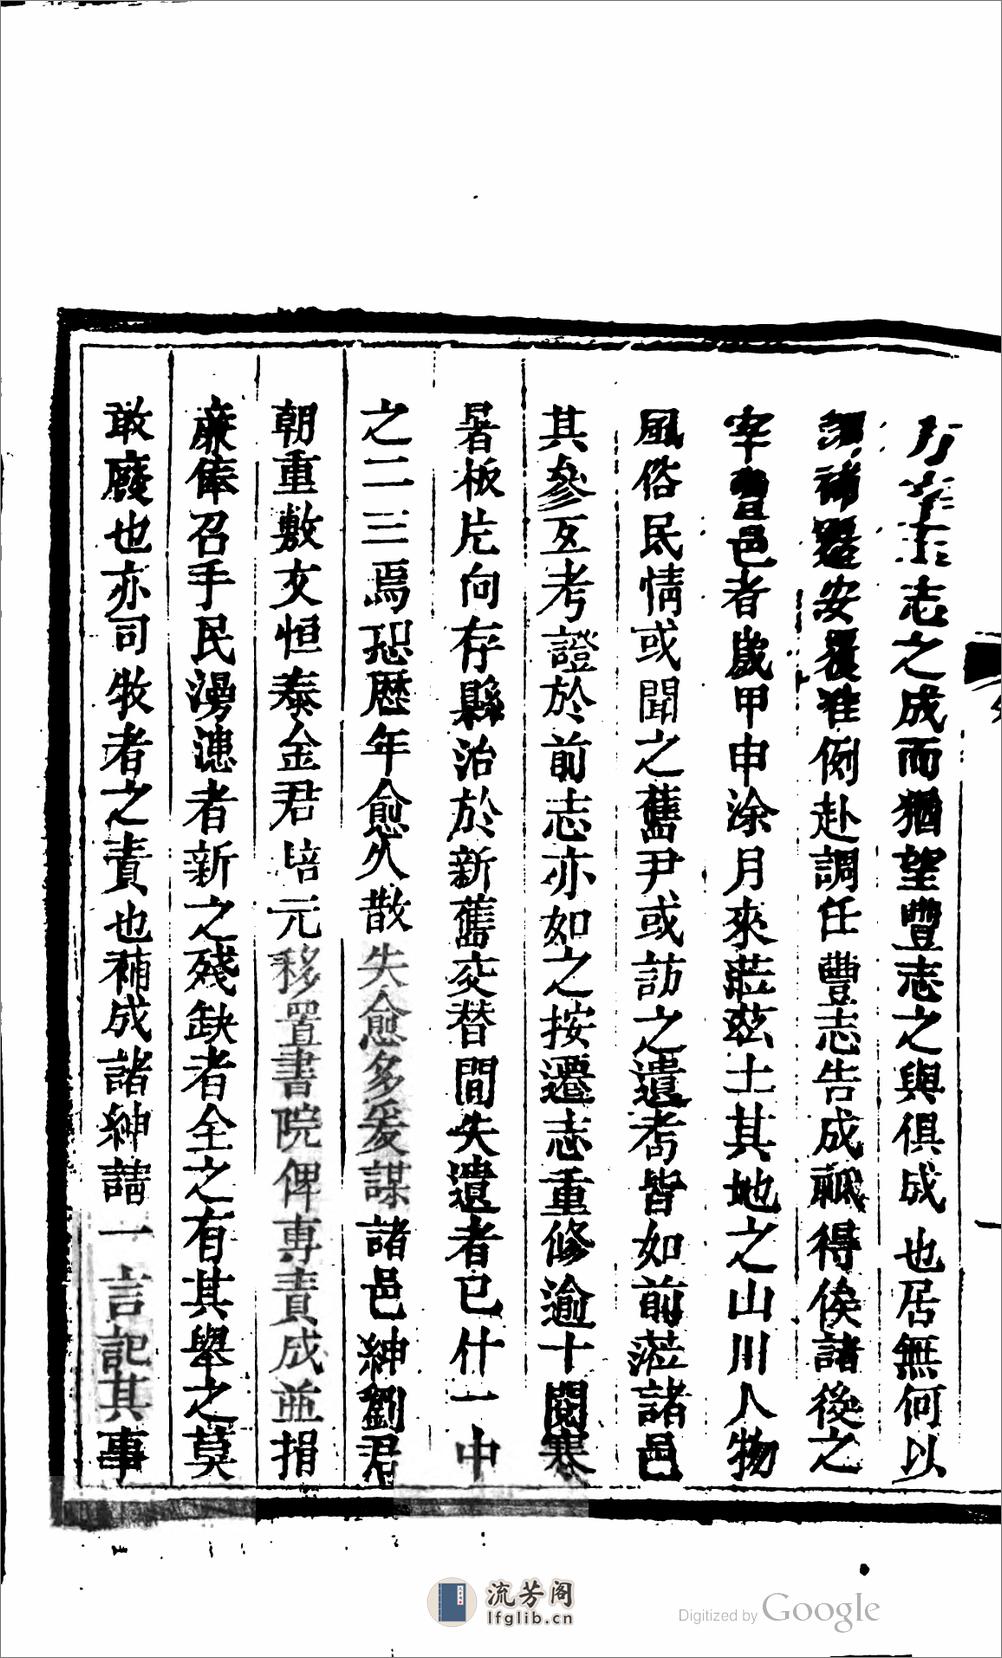 志之成而猶望豐志之與俱成也居無何以
諸 安 准例赴調任豐志告成祗得俟諸後之
宰 邑者歲甲申涂月來蒞茲土其地之山川人物
風俗民情或聞之舊尹或訪之遺耇皆如前蒞諸邑
其參互考證於前志亦如之按遷志重修逾十閱寒
暑板片向存縣治於新舊交替間失遺者已什一中
之二三焉恐歷年愈久散失愈多爰謀諸邑紳劉君
朝重敷文恒泰金君培元移置書院俾專責成並捐
廉俸召手民漫漶者新之殘缺者全之有其舉之莫
敢廢也亦司牧者之責也補成諸紳請一言記其事
流芳阁
lfglib.cn
Digitized by Google